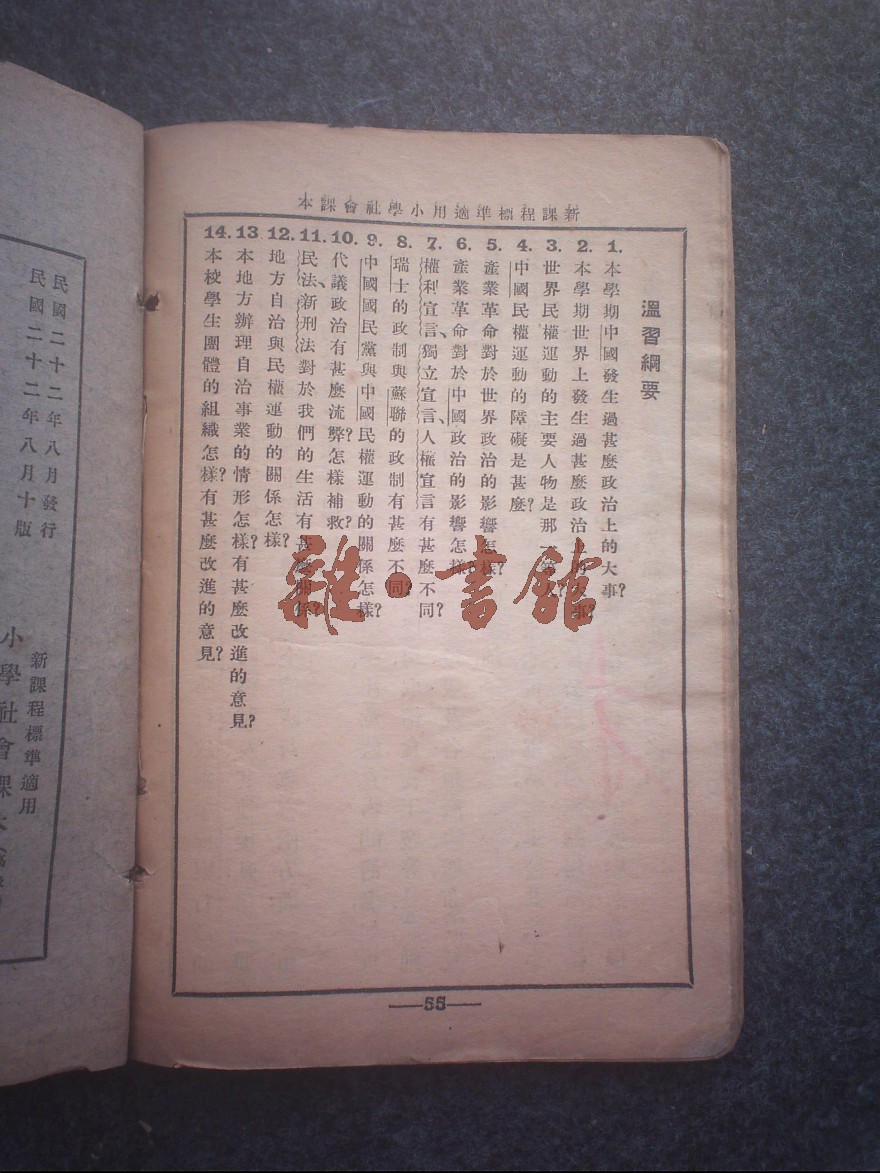 新課程標準適用小學社會課本
溫習綱要
1. 本學期中國發生過甚麼政治上的大事?
2. 本學期世界上發生過甚麼政治上的大事?
3. 世界民權運動的主要人物是那
4. 中國民權運動的障礙是甚麼?
5. 產業革命對於世界政治的影響怎樣?
6. 產業革命對於中國政治的影響怎樣?
7. 權利宣言、獨立宣言、人權宣言有甚麼不同?
8. 瑞士的政制與蘇聯的政制有甚麼不同?
9. 中國國民黨與中國民權運動的關係怎樣?
10. 代議政治有甚麼流弊?怎樣補救?
11. 民法、新刑法對於我們的生活有甚麼關係?
12. 地方自治與民權運動的關係怎樣?
13 本地方辦理自治事業的情形怎樣?有甚麼改進的意見?
14. 本校學生團體的組織怎樣?有甚麼改進的意見?
55
雜·書館
民國二十二年八月發行
民國二十二年八月十版
新課程標準適用
小學社會課本